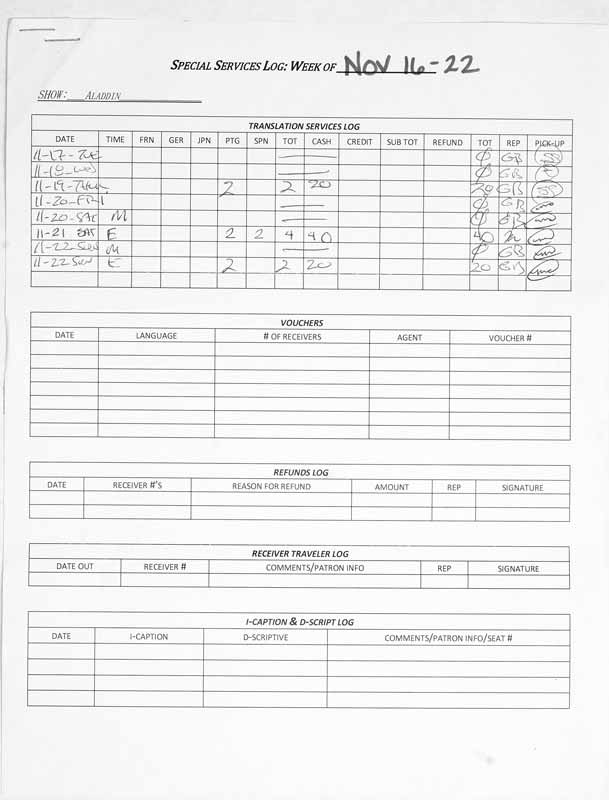 SPECIAL SERVICES LOG: WEEK OF NOV 16-22
SHOW: ALADDIN
TRANSLATION SERVICES LOG
DATE TIME FRN GER JPN PTG SPN TOT CASH CREDIT SUB TOT REFUND TOT REP PICK-UP
11-17-TUE — Ø GB SS
11-18-WED — Ø GB
11-19-THUR 2 2 20 20 GB SS
11-20-FRI — Ø GB
11-20-SAT M — Ø GB
11-21 SAT E 2 2 4 40 40
11-22-SUN M — Ø GB
11-22 SUN E 2 2 20 20 GB
VOUCHERS
DATE LANGUAGE # OF RECEIVERS AGENT VOUCHER #
REFUNDS LOG
DATE RECEIVER #'S REASON FOR REFUND AMOUNT REP SIGNATURE
RECEIVER TRAVELER LOG
DATE OUT RECEIVER # COMMENTS/PATRON INFO REP SIGNATURE
I-CAPTION & D-SCRIPT LOG
DATE I-CAPTION D-SCRIPTIVE COMMENTS/PATRON INFO/SEAT #